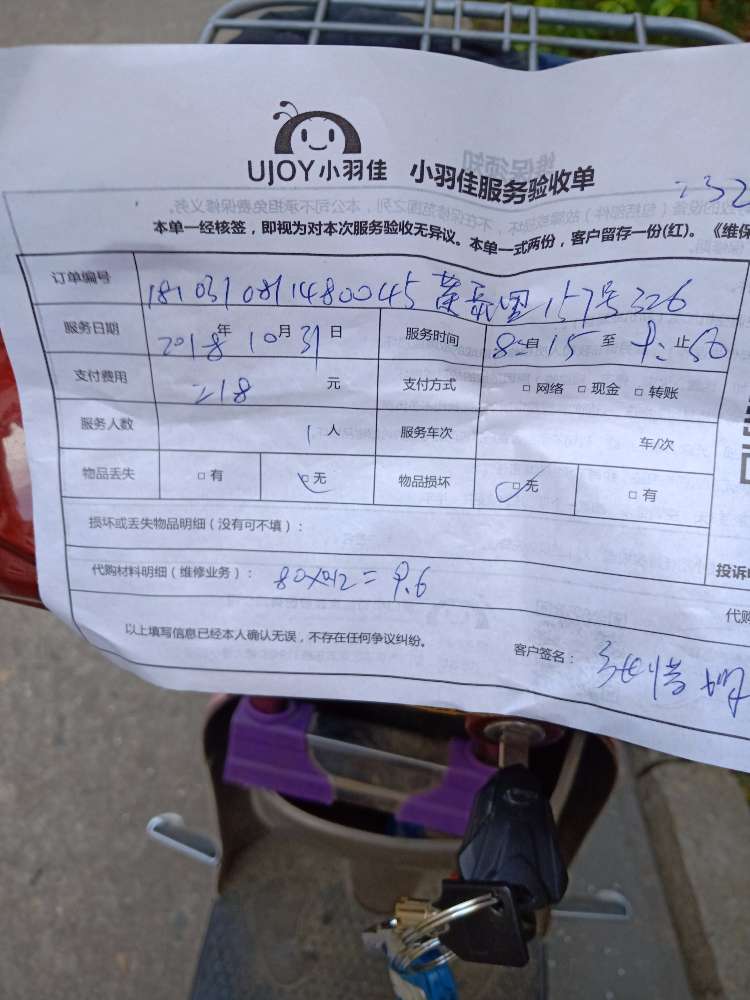 UJOY小羽佳 小羽佳服务验收单
本单一经核签，即视为对本次服务验收无异议。本单一式两份，客户留存一份(红)。《维保
订单编号 18103108114800045 157号326
服务日期 2018年10月31日 服务时间 自 15 至 止 50
支付费用 218 元 支付方式 □ 网络 □ 现金 □ 转账
服务人数 1 人 服务车次 车/次
物品丢失 □ 有 □ 无 物品损坏 □ 无 □ 有
损坏或丢失物品明细（没有可不填）：
投诉
代购材料明细（维修业务）： 80×0.12=9.6
代购
以上填写信息已经本人确认无误，不存在任何争议纠纷。 客户签名：